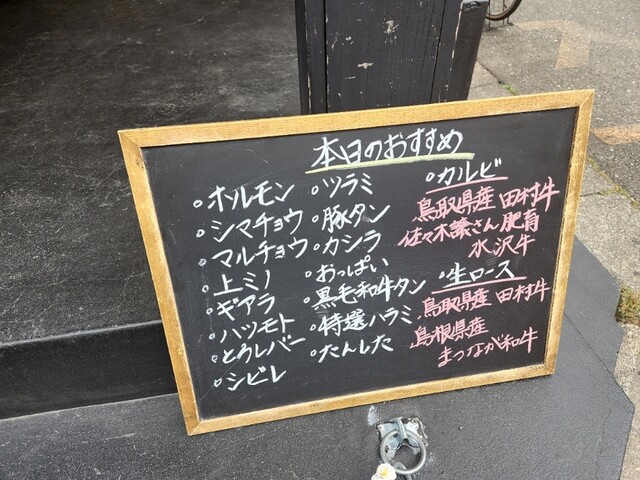 本日のおすすめ
・ホルモン
・シマチョウ
・マルチョウ
・上ミノ
・ギアラ
・ハツモト
・とろレバー
・シビレ
・ツラミ
・豚タン
・カシラ
・おっぱい
・黒毛和牛タン
・特選ハラミ
・たんした
・カルビ
鳥取県産 田村牛
佐々木譲さん肥育
水沢牛
・生ロース
鳥取県産 田村牛
島根県産
まつなが和牛